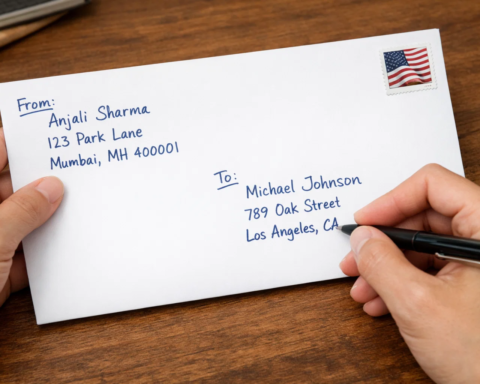 From:
Anjali Sharma
123 Park Lane
Mumbai, MH 400001
To:
Michael Johnson
789 Oak Street
Los Angeles, CA